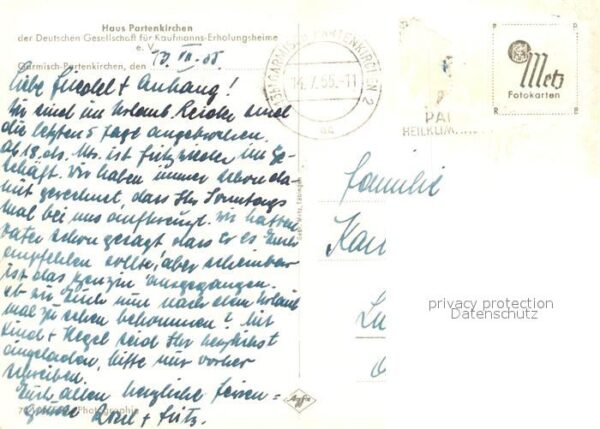 Haus Partenkirchen
der Deutschen Gesellschaft für Kaufmanns-Erholungsheime
e. V.
Garmisch-Partenkirchen, den 13. VII. 55.
Liebe Friedel + Anhang!
Wir sind im Urlaub. Leider sind
die letzten 5 Tage angebrochen.
Ab 18. ds. Mts. ist Fritz wieder im Ge-
schäft. Wir haben immer schon da-
mit gerechnet, dass Ihr Sonntags
mal bei uns aufkreuzt. Wir hatten
Vater schon gesagt dass er es Euch
empfehlen sollte, aber scheinbar
ist das Benzin ausgegangen.
Ob wir Euch nun nach dem Urlaub
mal zu sehen bekommen? Mit
Kind + Kegel seid Ihr herzlichst
eingeladen, bitte nur vorher
schreiben.
Euch allen herzliche Ferien-
grüsse + Fritz.
Photographie
Agfa
GARMISCH-PARTENKIRCHEN 2
14.7.55.-11
HEILKLIM
Metz
Fotokarten
Familie
privacy protection
Datenschutz